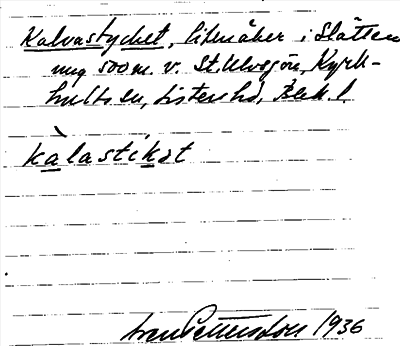 Kalvastycket, liten åker i Slätten
ung 500 m. v. St. Ulvsjön, Kyrk-
hults sn, Listers hd, Blek. l.
kàlastikat
Ivan Pettersson 1936